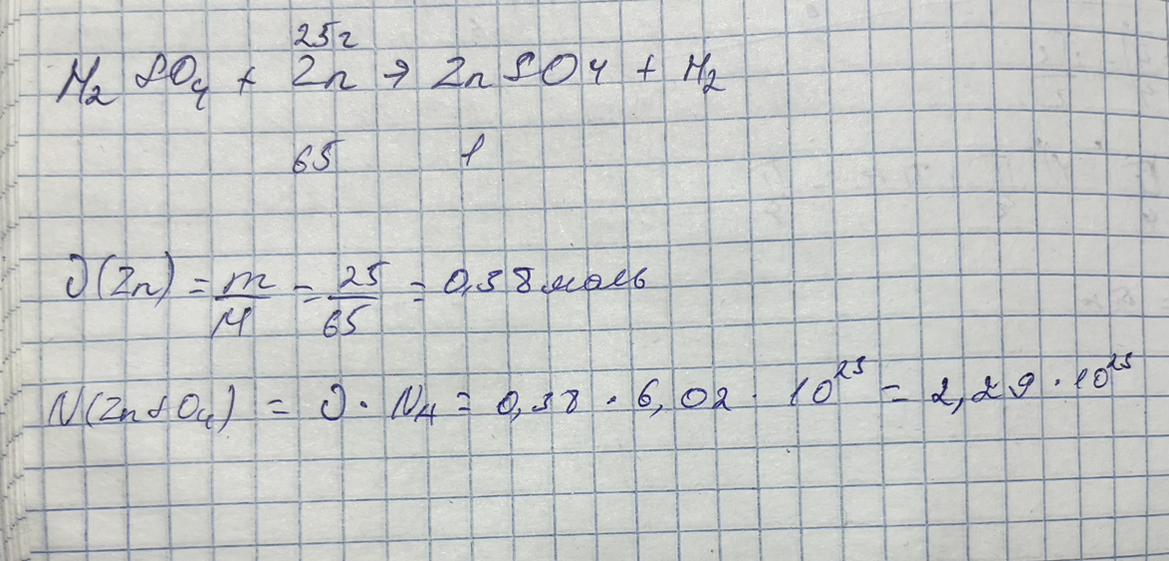 25г
H₂SO₄ + Zn → ZnSO4 + H₂
65 1
ν(Zn) = m/M = 25/65 = 0,38 моль
N(ZnSO₄) = ν · Nₐ = 0,38 · 6,02 · 10²³ = 2,29 · 10²³